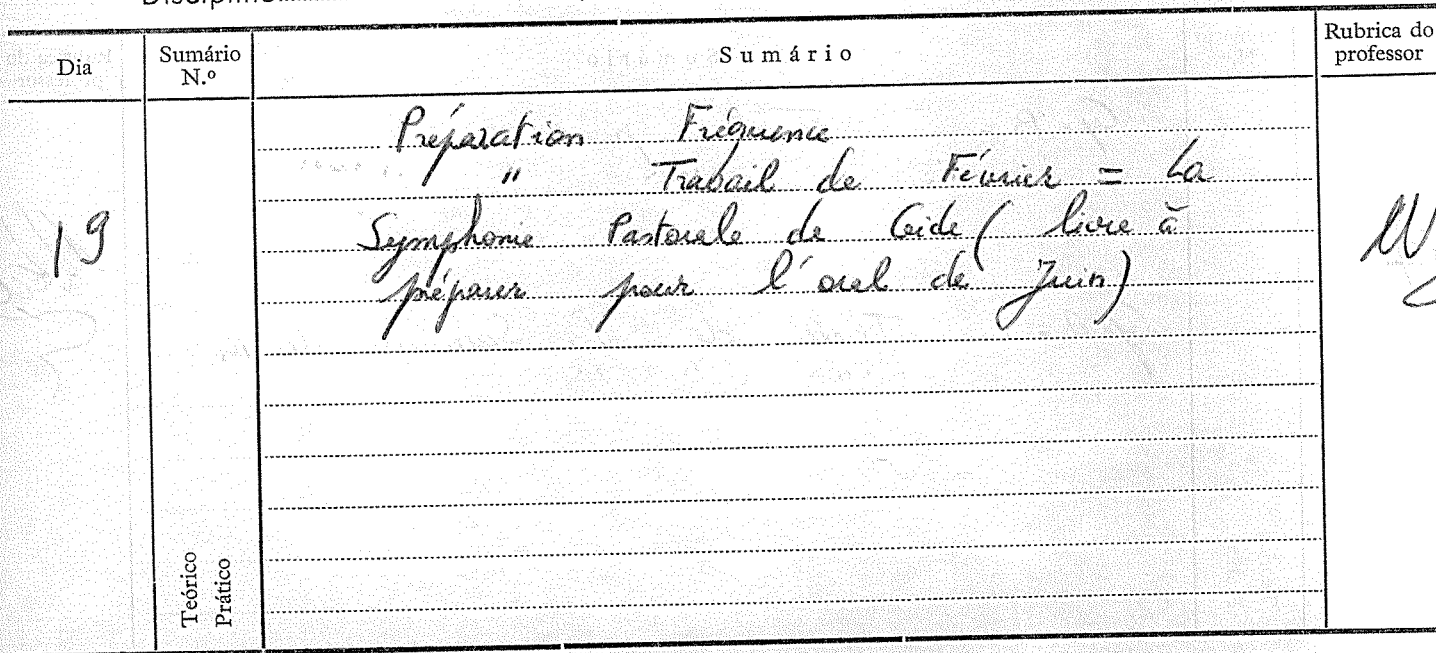 Disciplina
Dia
Sumário N.º
Sumário
Rubrica do professor
Préparation Fréquence
" Travail de Février = La
19
Symphonie Pastorale de Gide ( livre à
préparer pour l'oral de Juin)
Teórico
Prático